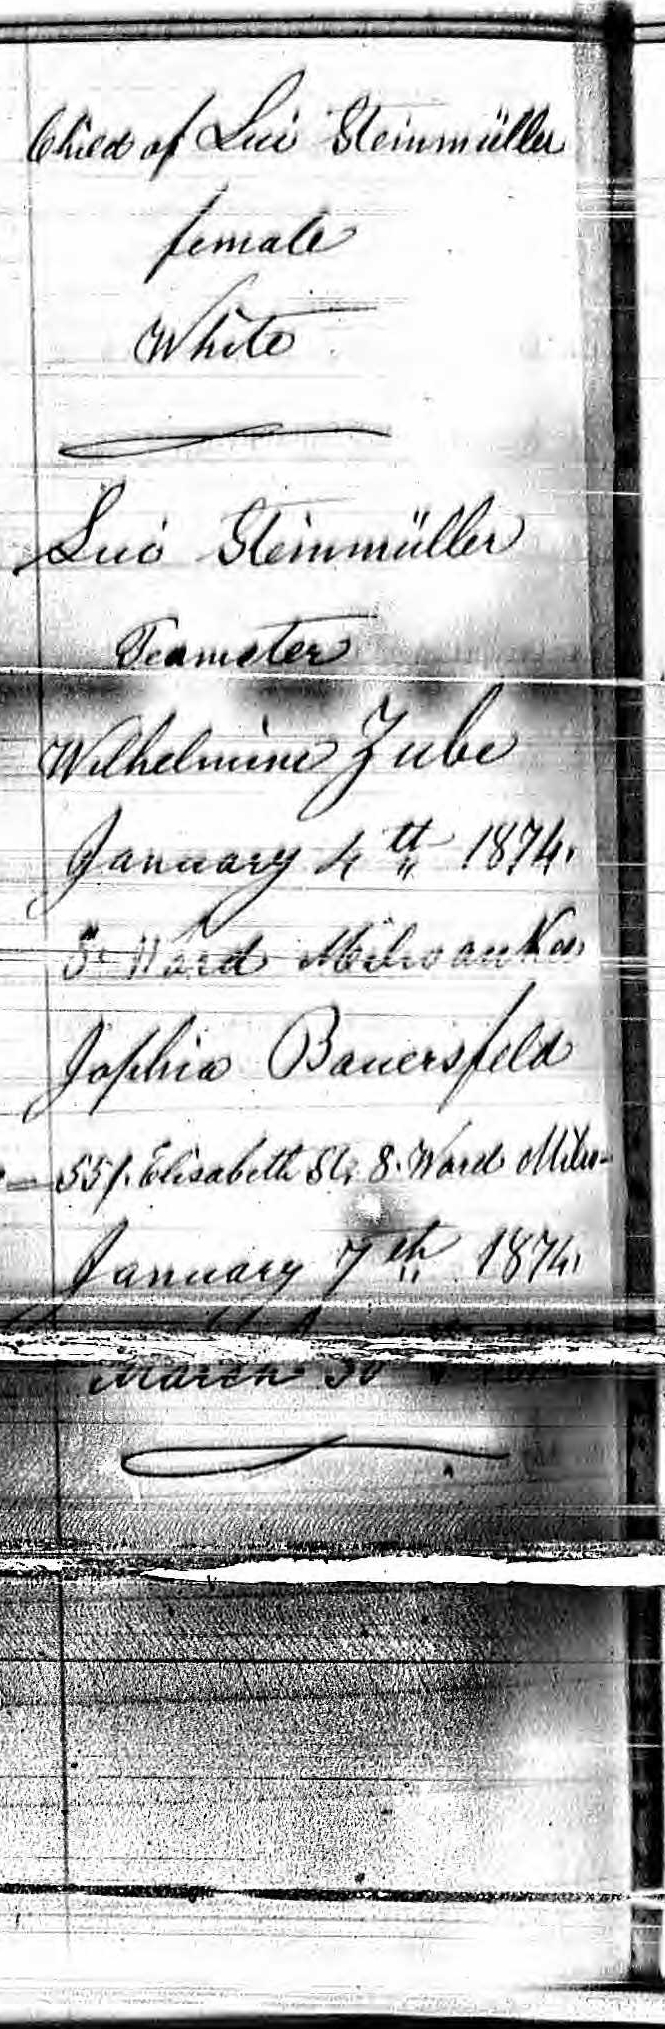 Child of Luis Steinmüller
female
White
Luis Steinmüller
Teamster
Wilhelmine Zube
January 4th 1874.
Ward Milwaukee
Sophia Bauersfeld
551. Elisabeth St. 8. Ward Milw-
January 7th 1874.
March 30